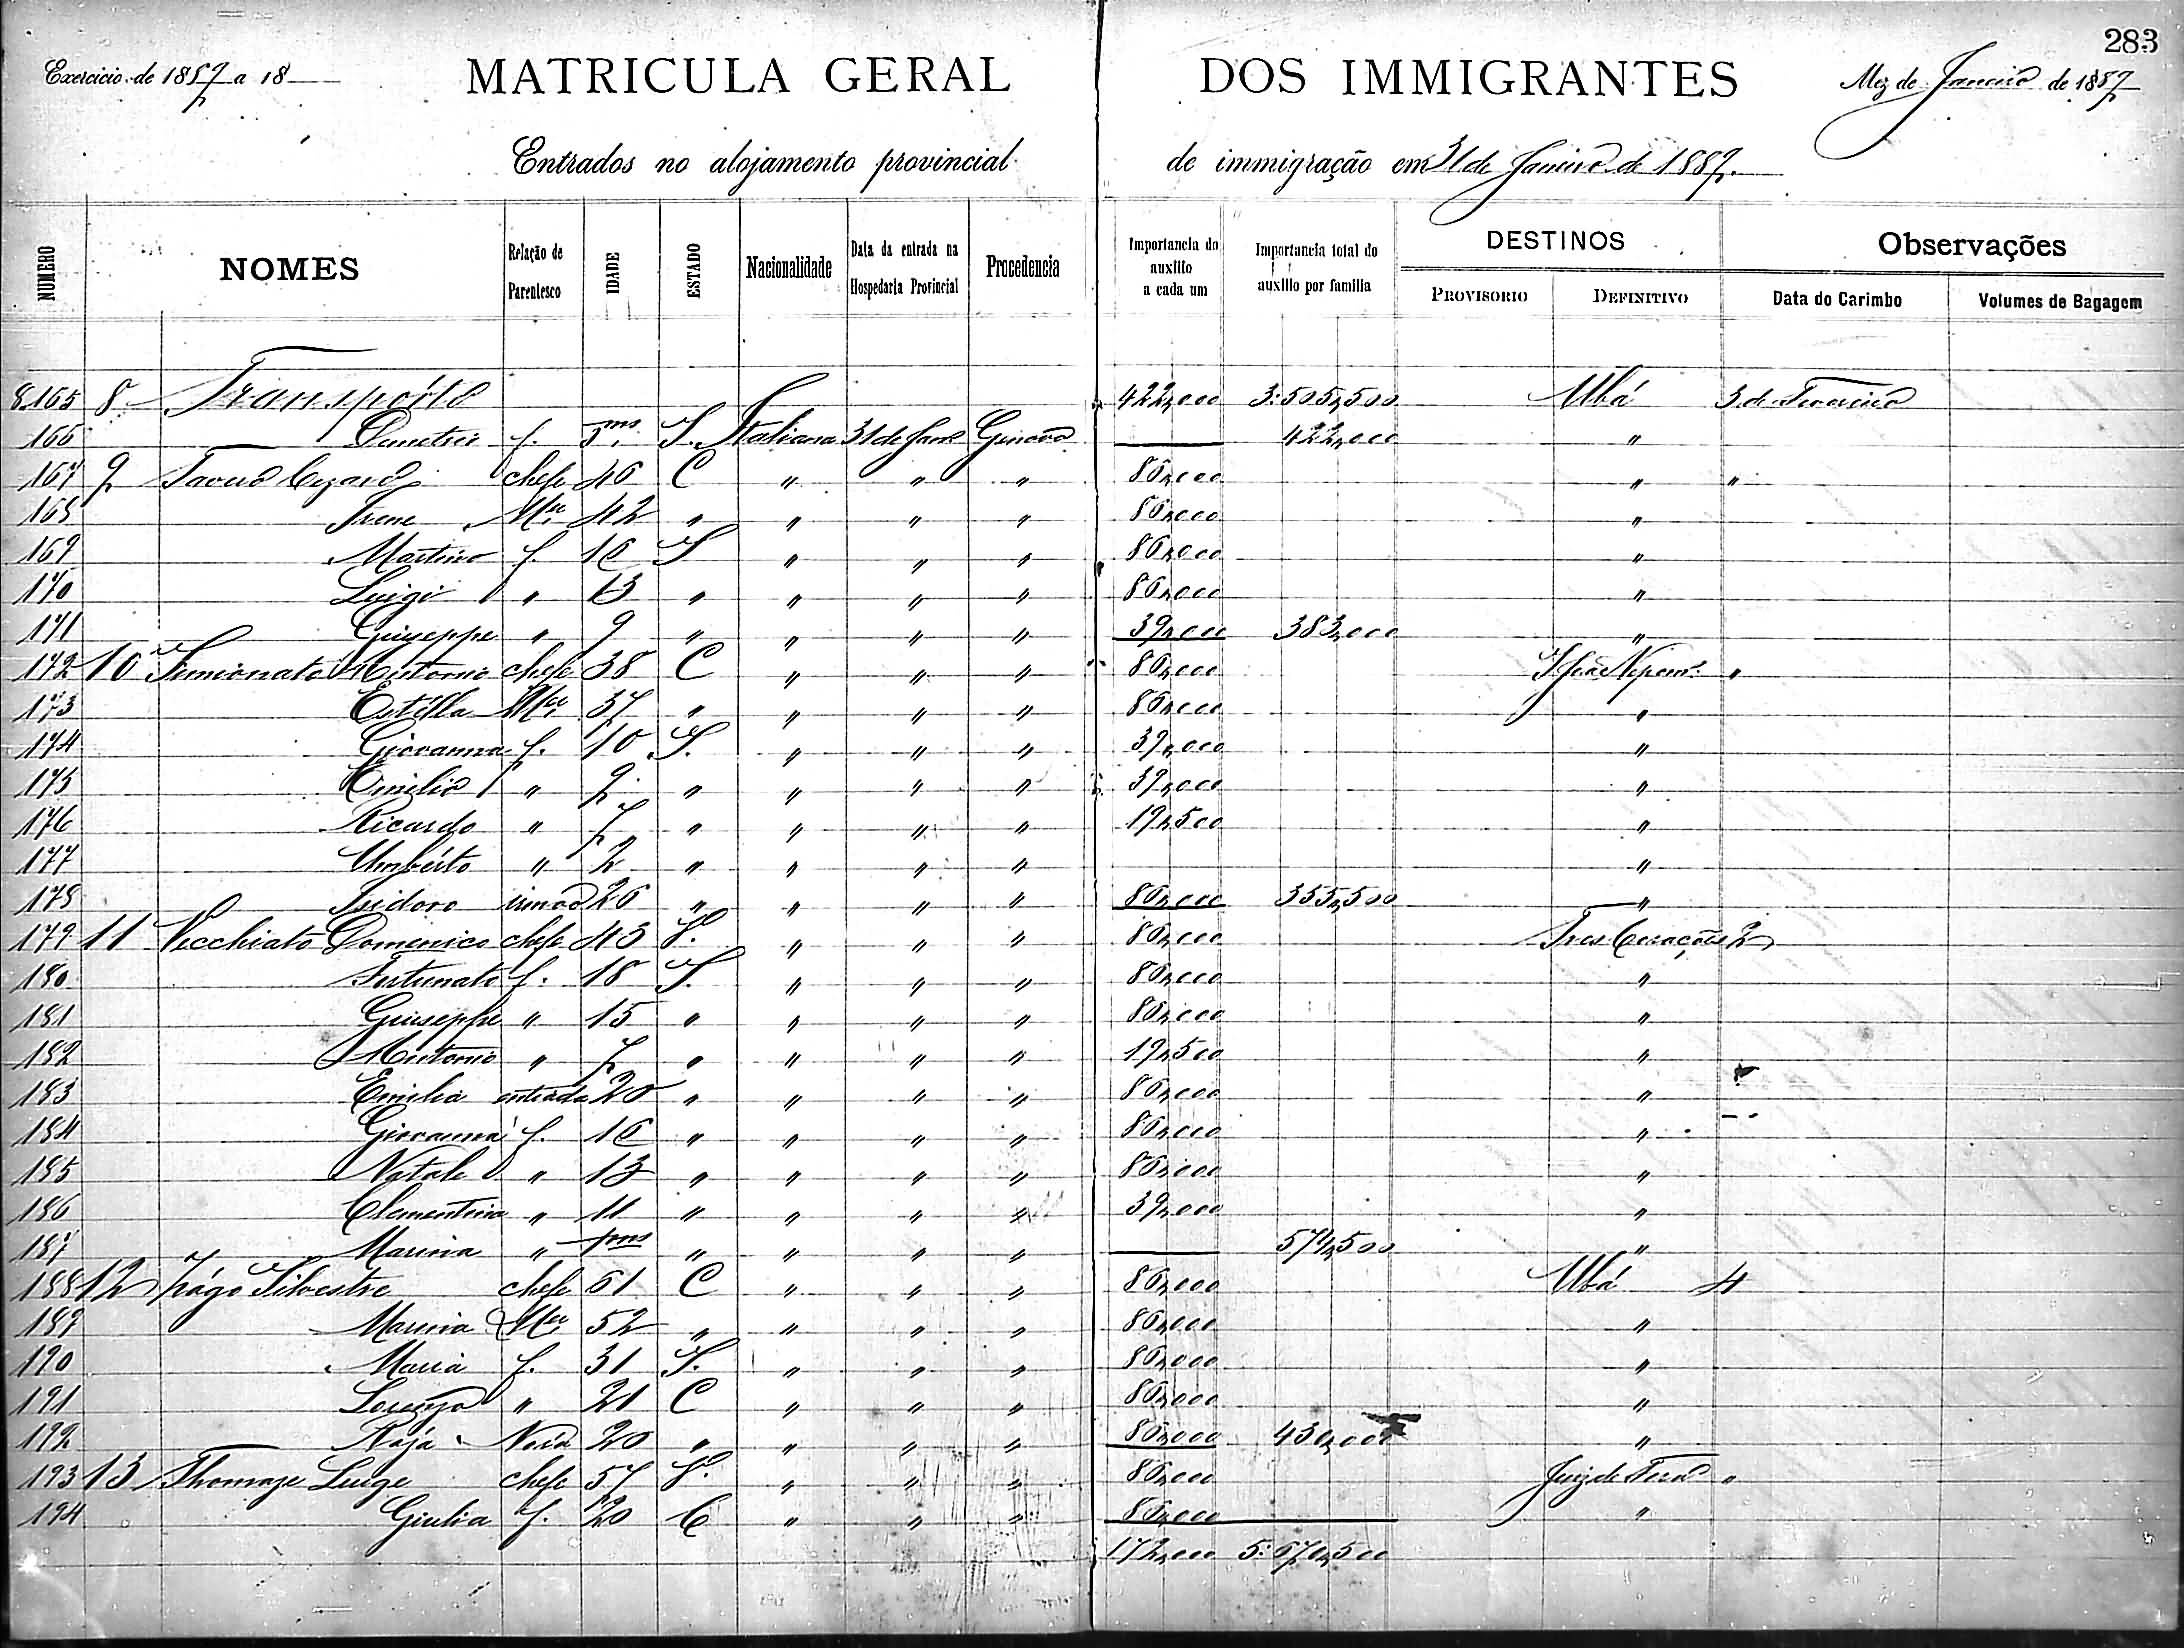 283
Exercicio de 1889 a 18
MATRICULA GERAL DOS IMMIGRANTES
Mez de Janeiro de 1889
Entrados no alojamento provincial de immigração em 31 de Janeiro de 1889.
NUMERO NOMES Relação de Parentesco IDADE ESTADO Nacionalidade Data da entrada na Hospedaria Provincial Procedencia Importancia do auxilio a cada um Importancia total do auxilio por familia DESTINOS PROVISORIO DEFINITIVO Observações Data do Carimbo Volumes de Bagagem
8165 8 Transpórte 422,000 3:505,500 Ubá 3 de Fevereiro
166 f. ms S. Italiana 31 de Janr Genova 422,000 "
167 9 chefe 46 C " " " 86,000 " "
168 Irene Mer 42 " " " " 86,000 "
169 Martino f. 16 S " " " 86,000 "
170 Luigi " 13 " " " " 86,000 "
171 Giuseppe " 9 " " " " 39,000 383,000 "
172 10 Simionato Antonio chefe 38 C " " " 86,000 S. João Nepom. "
173 Estélla Mer 37 " " " " 86,000 "
174 Giovanna f. 10 S. " " " 39,000 "
175 Emilio " 9 " " " " 39,000 "
176 Ricardo " 7 " " " " 19,500 "
177 Umbérto " 2 " " " " "
178 Isidoro irmão 26 " " " " 86,000 355,500 "
179 11 Vecchiato Domenico chefe 43 V. " " " 86,000 Tres Corações 2
180 Fortunato f. 18 S. " " " 86,000 "
181 Giuseppe " 15 " " " " 86,000 "
182 Antonio " 7 " " " " 19,500 "
183 Emilia 20 " " " " 86,000 "
184 Giovanna f. 16 " " " " 86,000 "
185 Natale " 13 " " " " 86,000 "
186 Clementina " 11 " " " " 39,000 "
187 Marina " ms " " " " 574,500 "
188 12 Silvestre chefe 61 C " " " 86,000 Ubá 4
189 Marina Mer 52 " " " " 86,000 "
190 Maria f. 31 S. " " " 86,000 "
191 Lorenzo " 21 C " " " 86,000 "
192 Nóra 20 " " " " 86,000 430,000 "
193 13 Thomaze Luige chefe 57 V. " " " 86,000 Juiz de Fora "
194 Giulia f. 20 C " " " 86,000 "
172,000 5:670,500